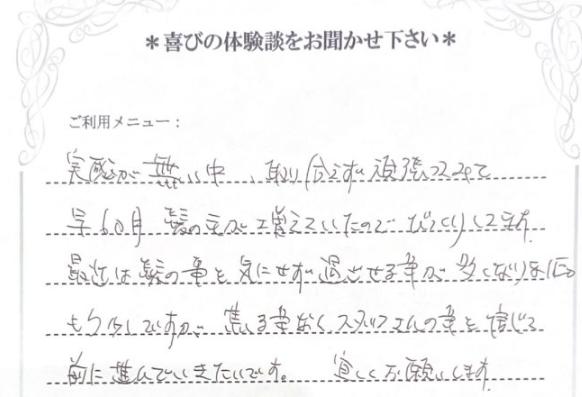 *喜びの体験談をお聞かせ下さい*
ご利用メニュー:
実感が無い中、取り合えず頑張ってみて
早6ヶ月 髪の毛が増えていたのでびっくりしてます。
最近は髪の事を気にせず過せる事が多くなりました
もう少しですが焦る事なくスタッフさんの事を信じて
前に進んでいきたいです。 宜しくお願いします